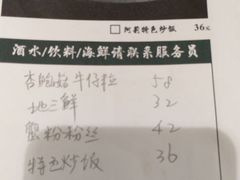 阿莉特色炒饭 36元
酒水/饮料/海鲜请联系服务员
杏鲍菇牛仔粒 58
地三鲜 32
蟹粉粉丝 42
特色炒饭 36